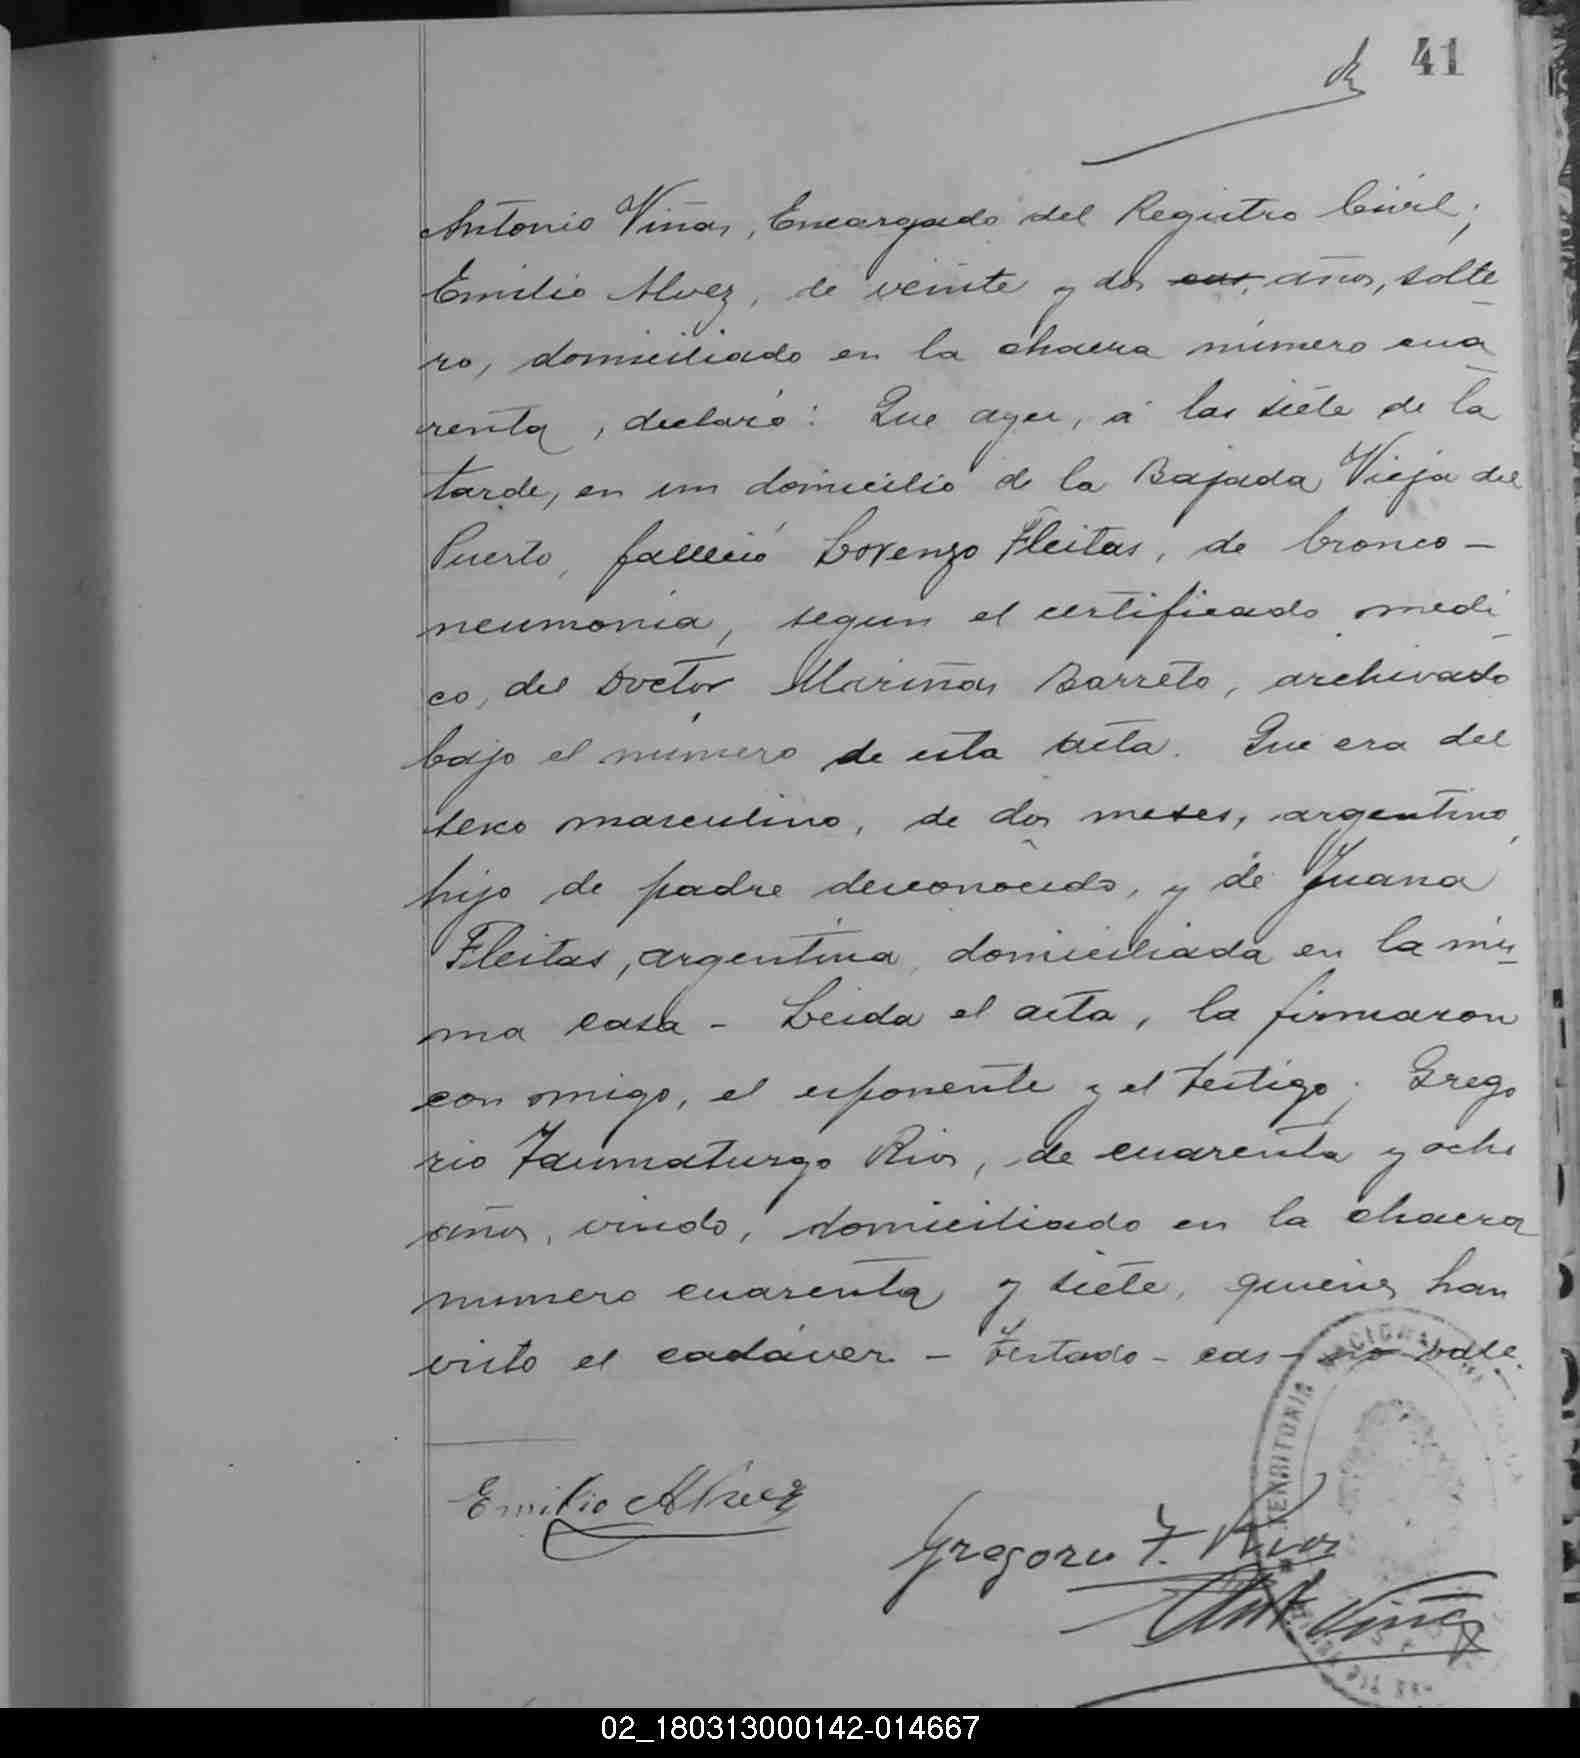 41
Antonio Viñas, Encargado del Registro Civil;
Emilio Alvez, de veinte y dos cas, años, solte
ro, domiciliado en la chacra número cua
renta, declaró: Que ayer, á las siete de la
tarde, en un domicilio de la Bajada Vieja del
Puerto, falleció Lorenzo Fleitas, de bronco-
neumonia, segun el certificado medi
co, del Doctor Mariñas Barreto, archivado
bajo el número de esta acta. Que era del
sexo masculino, de dos meses, argentino,
hijo de padre desconocido, y de Juana
Fleitas, argentina, domiciliada en la mis
ma casa - Leida el acta, la firmaron
con migo, el esponente y el testigo; Grego
rio Taumaturgo Rios, de cuarenta y ocho
años, viudo, domiciliado en la chacra
numero cuarenta y siete, quienes han
visto el cadáver. - Testado - cas - no vale.
Emilio Alvez
Gregorio T. Rios
Ant. Viñas
TERRITORIO NACIONAL
02_180313000142-014667